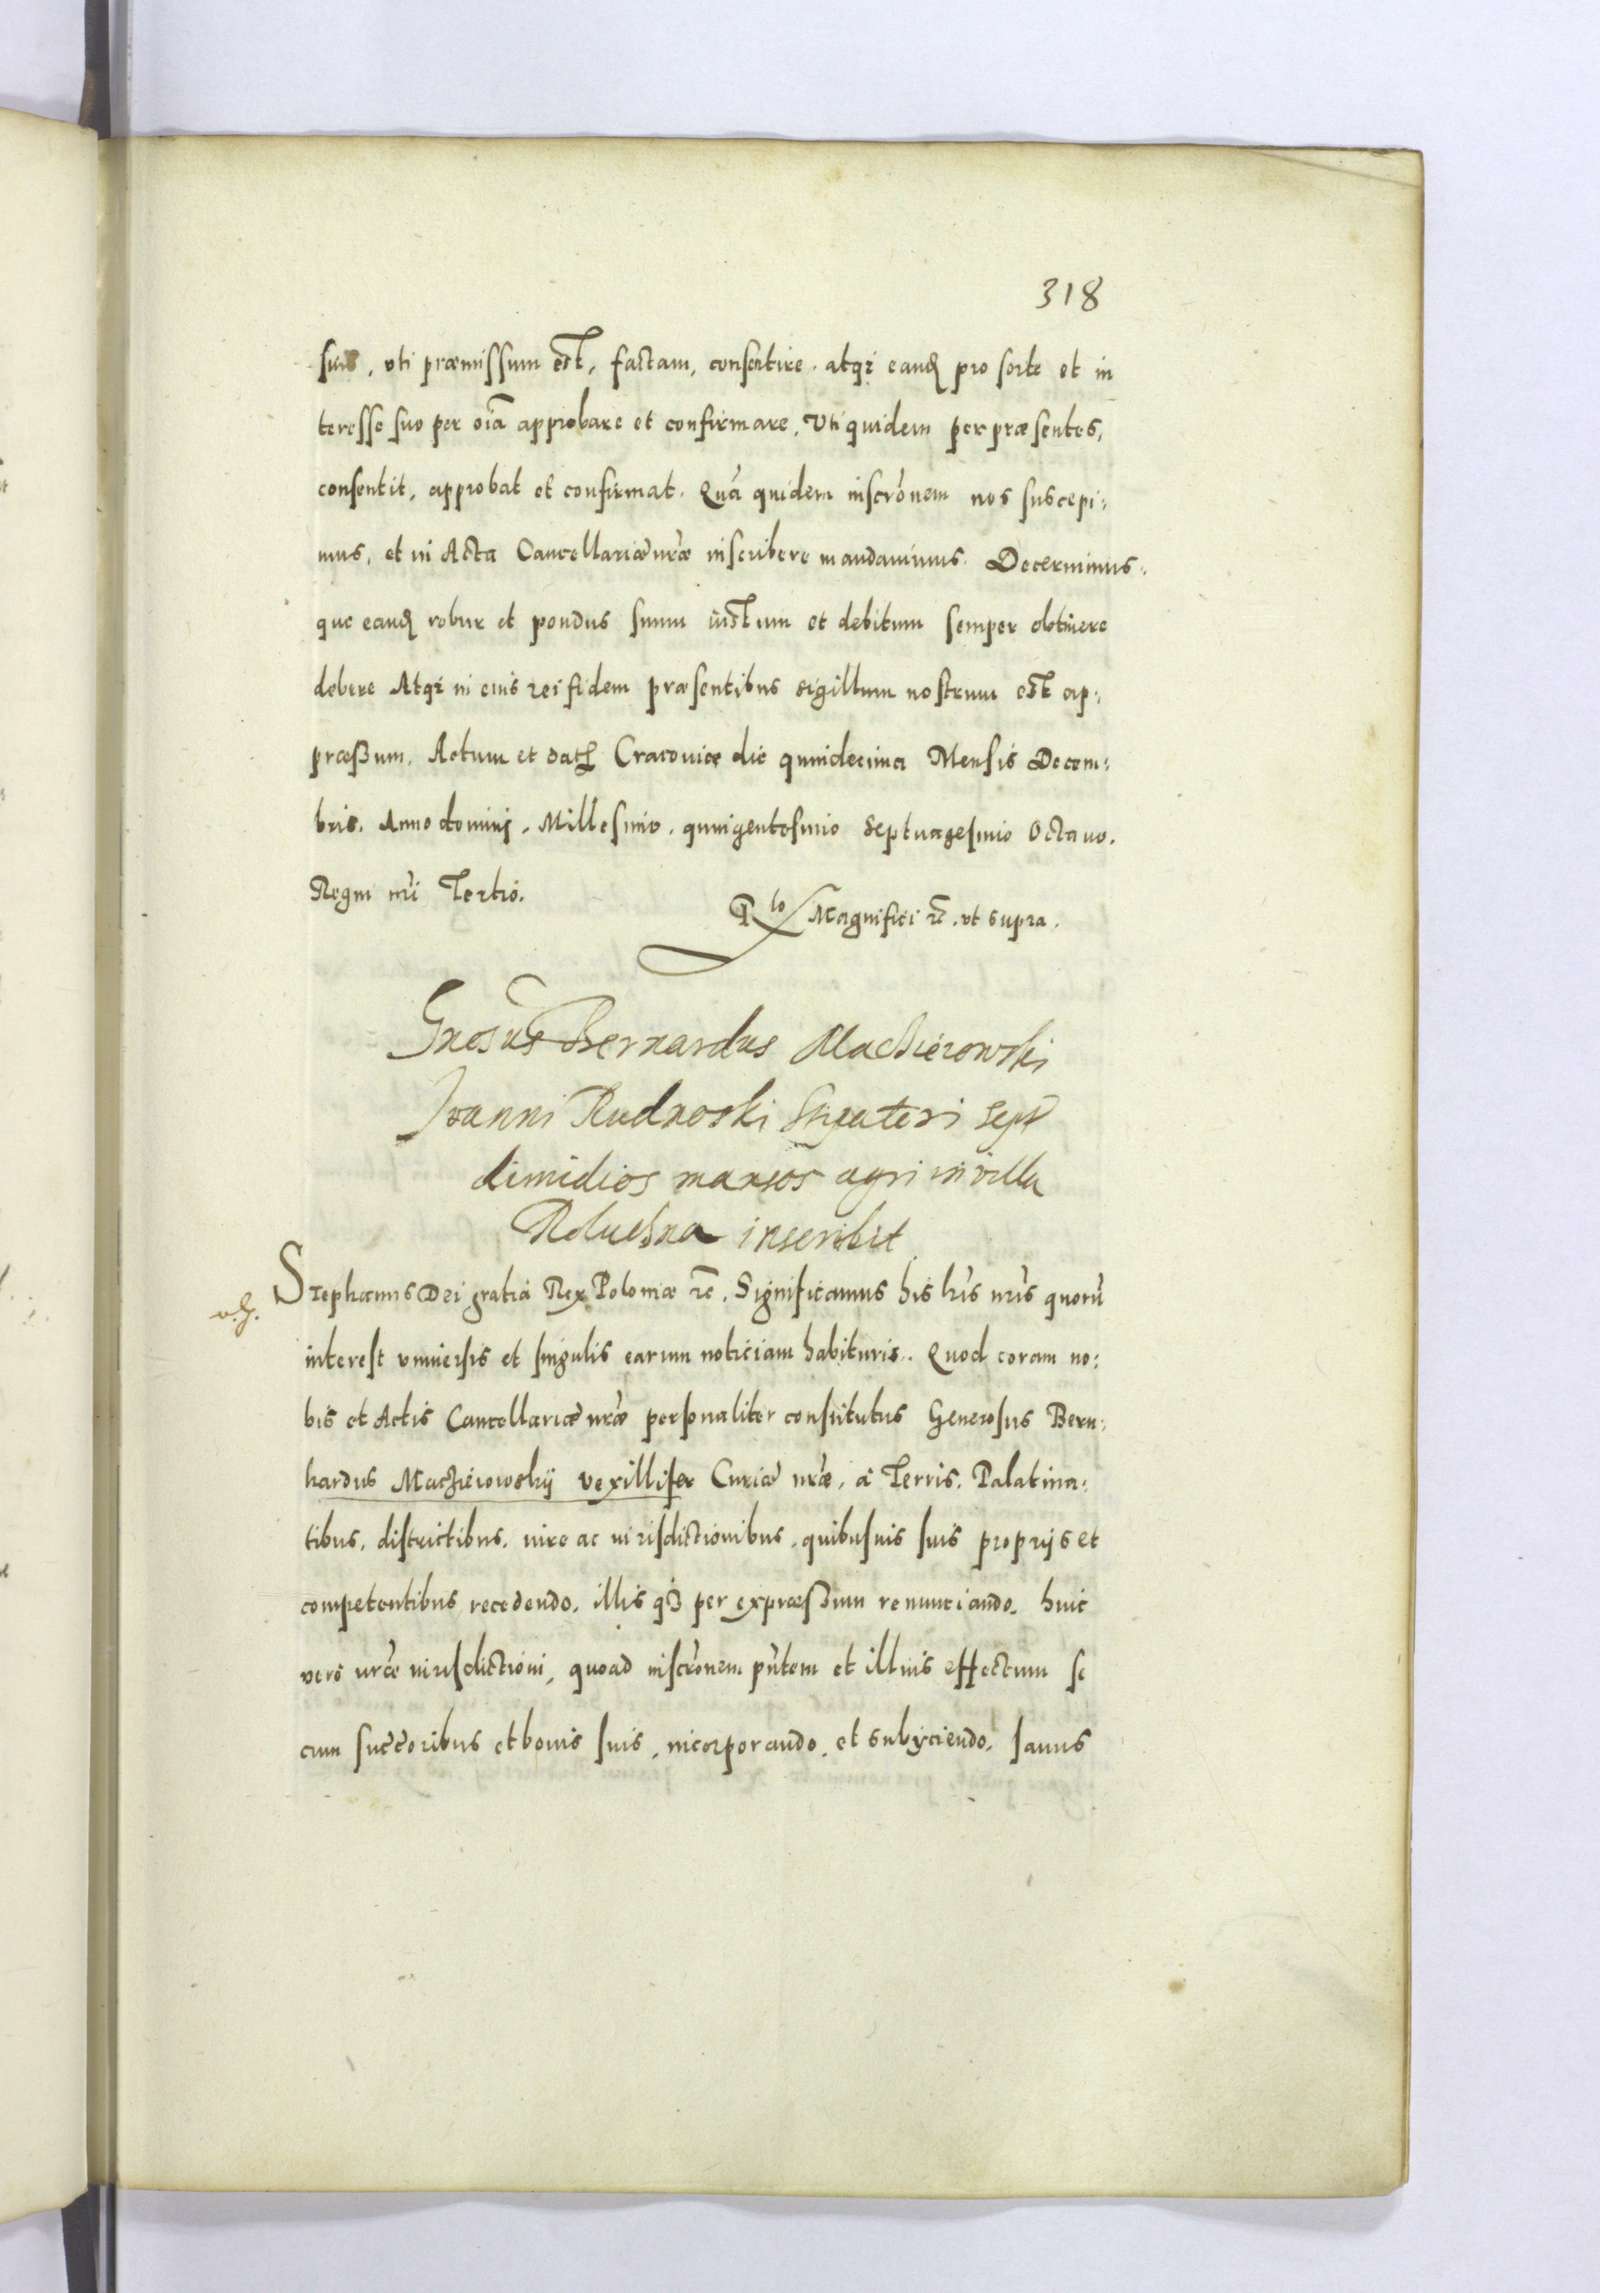 318
suis, vti præmissum est, factam, consentire. atqz eand pro sorte et in
teresse suo per oia approbare et confirmare, Vti quidem per præsentes,
consentit, approbat et confirmat. Quã quidem inscrõnem nos suscepi:
mus, et in Acta Cancellariæ nræ inscribere mandauimus. Decernimus:
que eand robur et pondus suum iustum et debitum semper obtinere
debere Atqz in eius rei fidem præsentibus sigillum nostrum est ap:
præssum. Actum et dat Cracouiæ die quindecima Mensis Decem:
bris. Anno dominj. Millesimo. quingentesimo Septuagesimo Octauo.
Regni nri Tertio.
Rlo Magnifici rc. vt supra.
Gnosus Bernardus Machieiowski
Ioanni Rudnoski Stipatori sept
dimidios mansos agri in villa
inscribit
Stephanus Dei gratia Rex Poloniæ rc. Significamus his lris nris quorũ
interest vniuersis et singulis earum noticiam habituris. Quod coram no:
bis et Actis Cancellariæ nræ personaliter constitutus Generosus Bern:
hardus Machieiowskij vexillifer Curiæ nræ, à Terris. Palatina:
tibus, districtibus, iure ac iurisdictionibus, quibusuis suis proprijs et
competentibus recedendo. illis qz per expræssum renunciando. huic
verò nræ iurisdictioni, quoad inscrõnem pñtem et illius effectum se
cum succcoribus et bonis suis, incorporando, et subijciendo, sanus